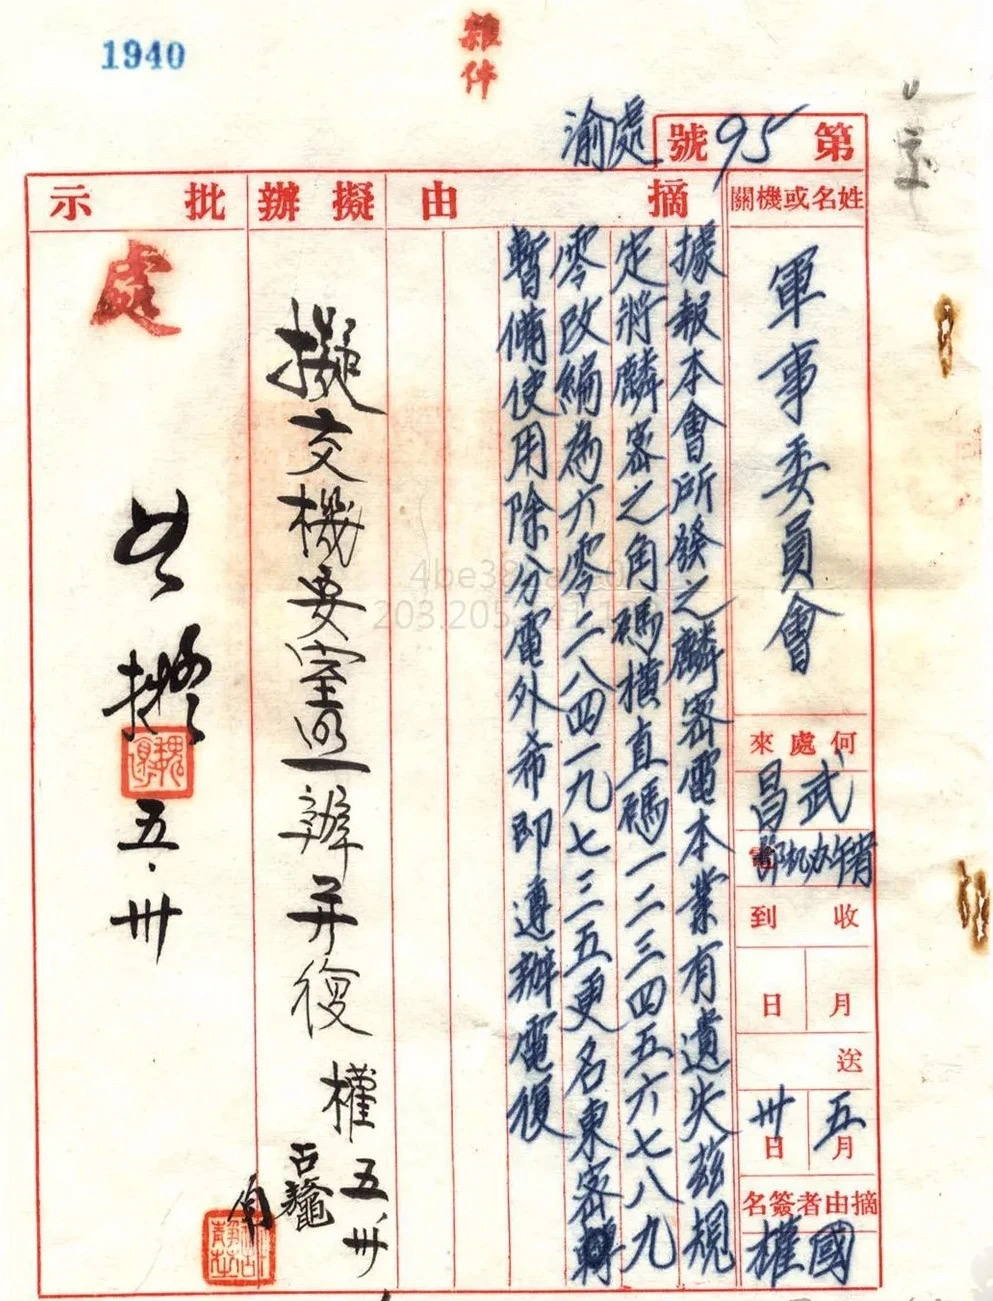 1940
雜件
渝處
第95號
姓名或機關
摘由
擬辦
批示
軍事委員會
何處來
武昌
電
收到
月
日
送
五月
卅日
摘由者簽名
國權
據報本會所發之麟密電本業有遺失茲規
定將麟密之角碼橫直碼一二三四五六七八九
零改編為六零二八四一九七三五更名東密轉
暫備使用除分電外希即遵辦電復
擬交機要室遵辦並復
權
五、卅
處
如擬
五．卅